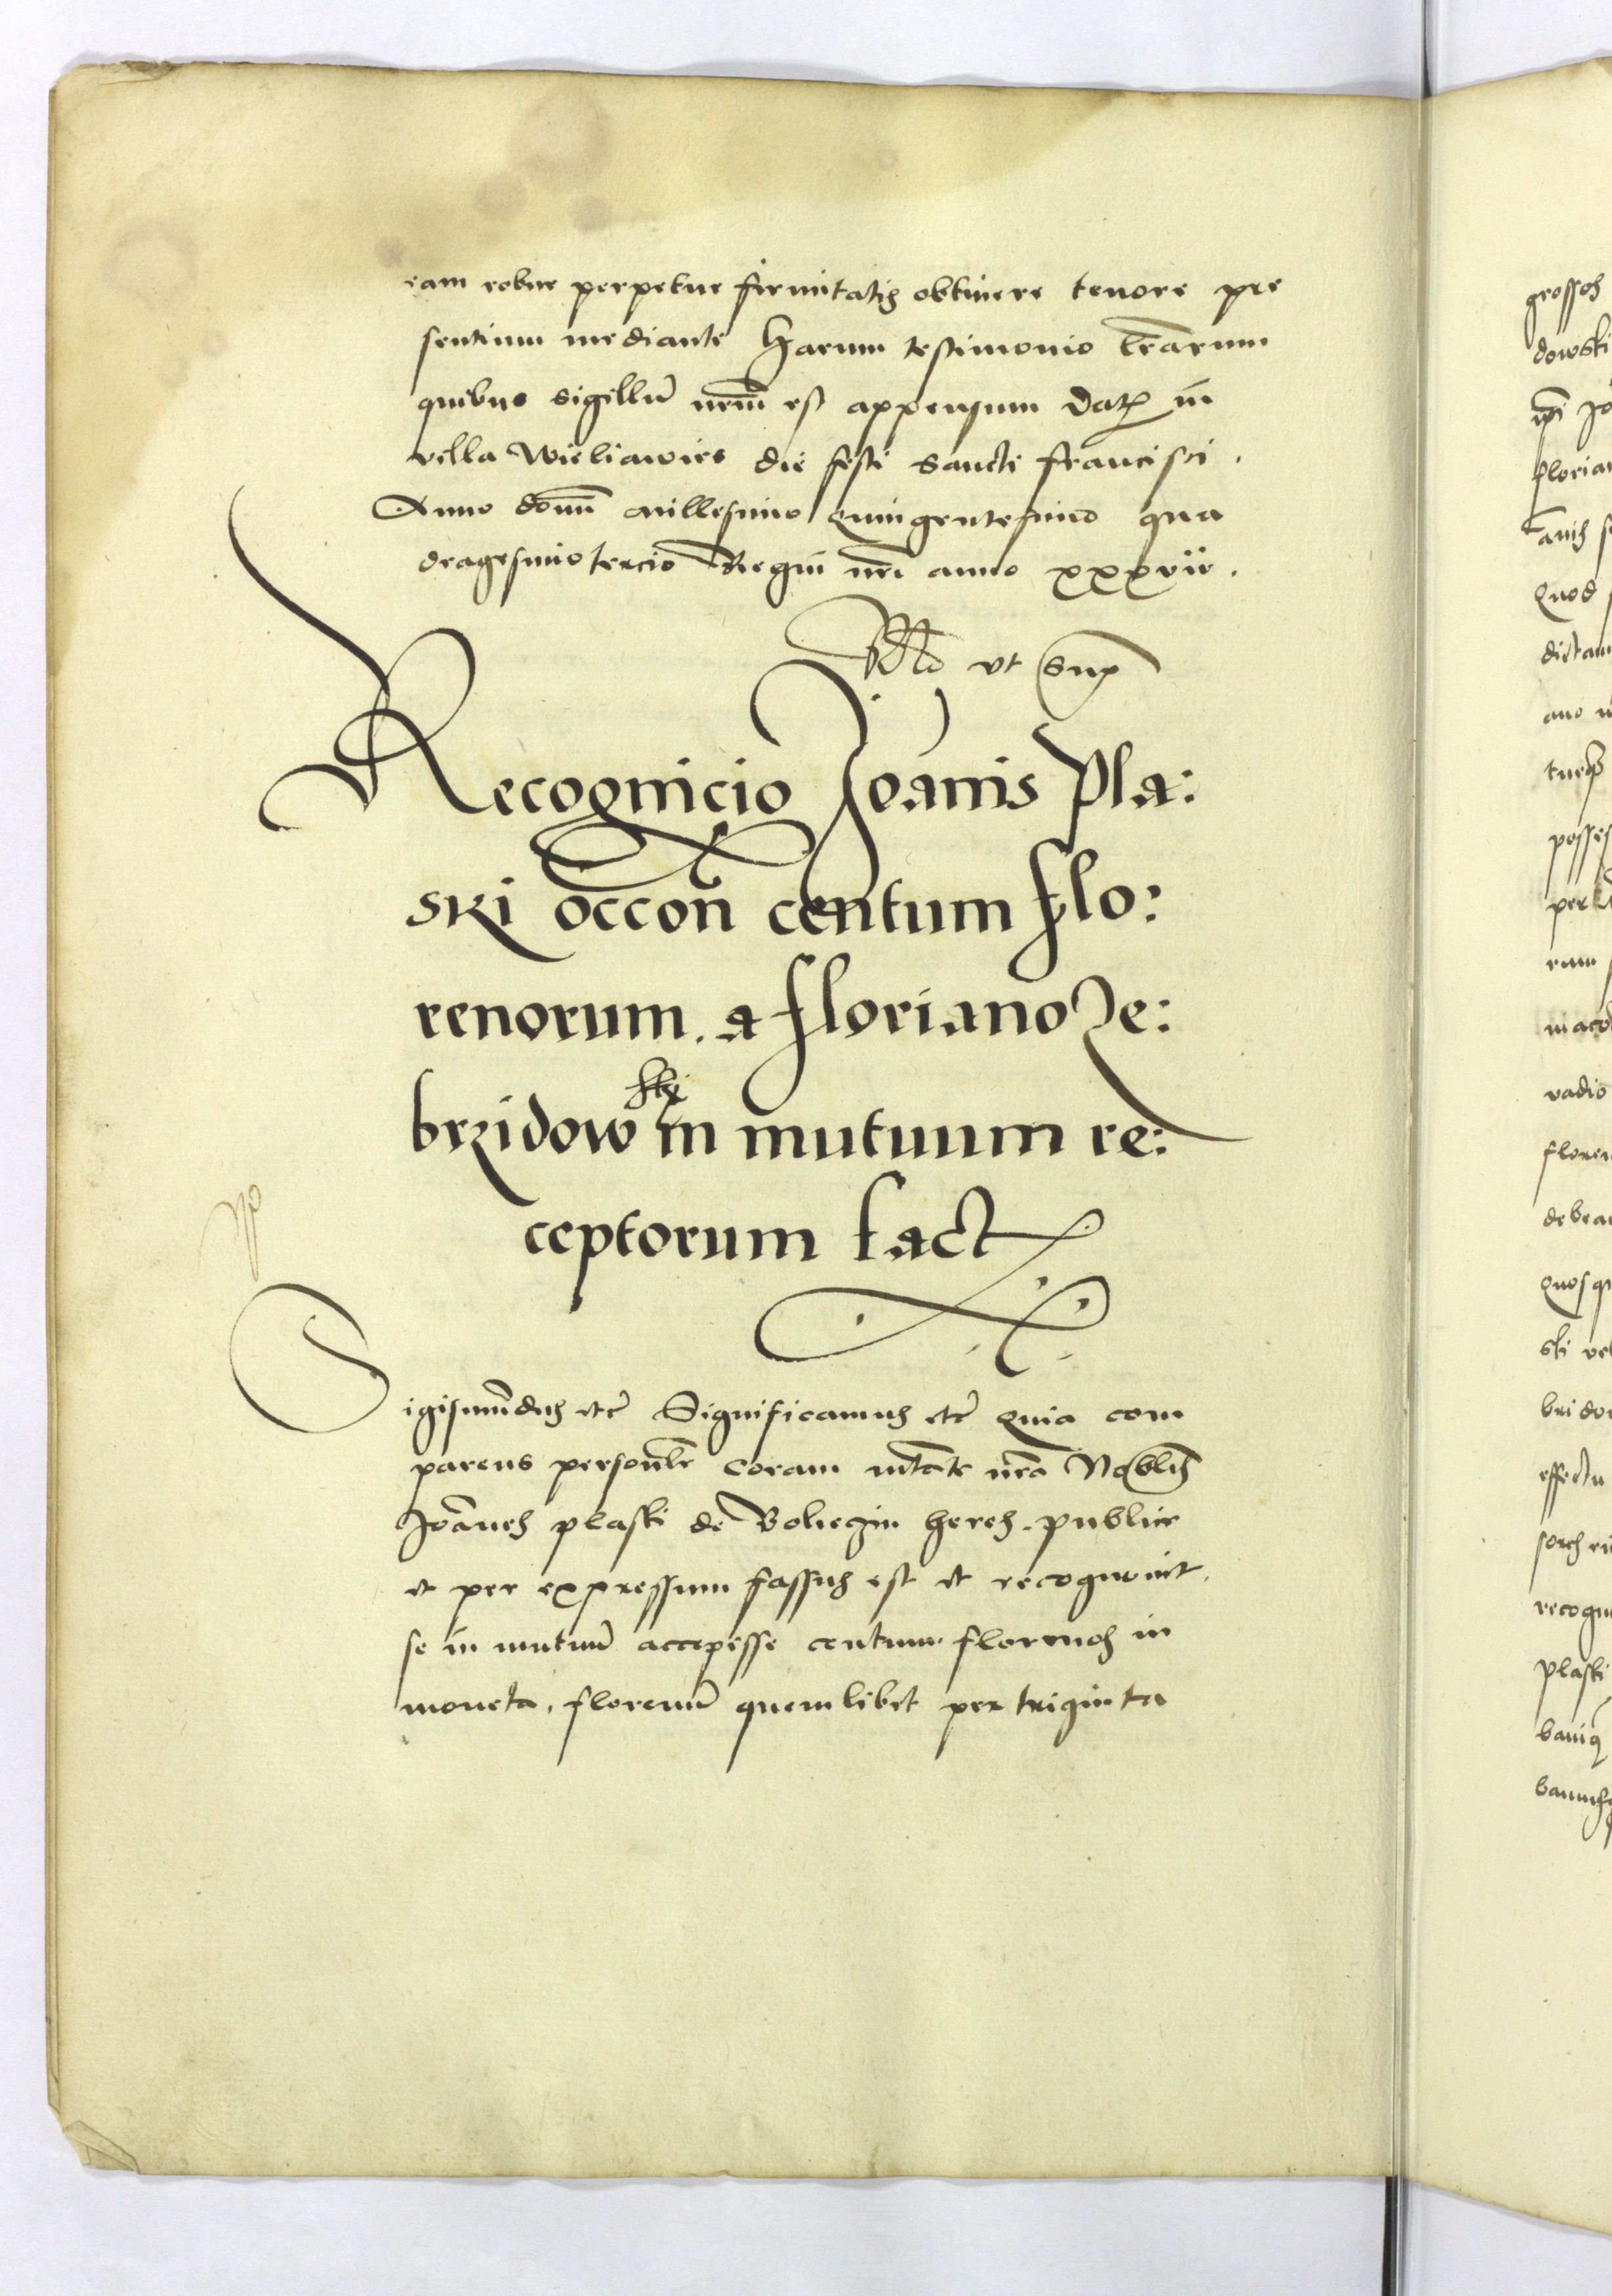 eam robur perpetue firmitatis obtinere tenore pre
sentium mediante harum testimonio lr̄arum
quibus sigillū nrm̄ est appensum Dat in
villa Wieliawies die festi Sancti Francisci.
Anno domī millesimo Quingentesimo qua
dragesimo tercio Regni nrī anno xxxvii.
ut supra
Recognicio Joānis Pla:
ski occōn centum flo:
renorum. a floriano Ze:
brzidowski in mutuum re:
ceptorum fact
Sigismūdus etc̄ Significamus etc̄ Quia com
parens personlr̄ coram mtāte nrā Noblis̄
Joānes plaski de heres. publice
et per expressum fassus est et recognovit.
se in mutuū accepisse centum florenos in
moneta. florenū quemlibet per triginta
grossos
dowski
floria
Quod
dicta
posses
vadio
floren
debea
Quosq
ski vel
brido
effectu
recogn
plaski